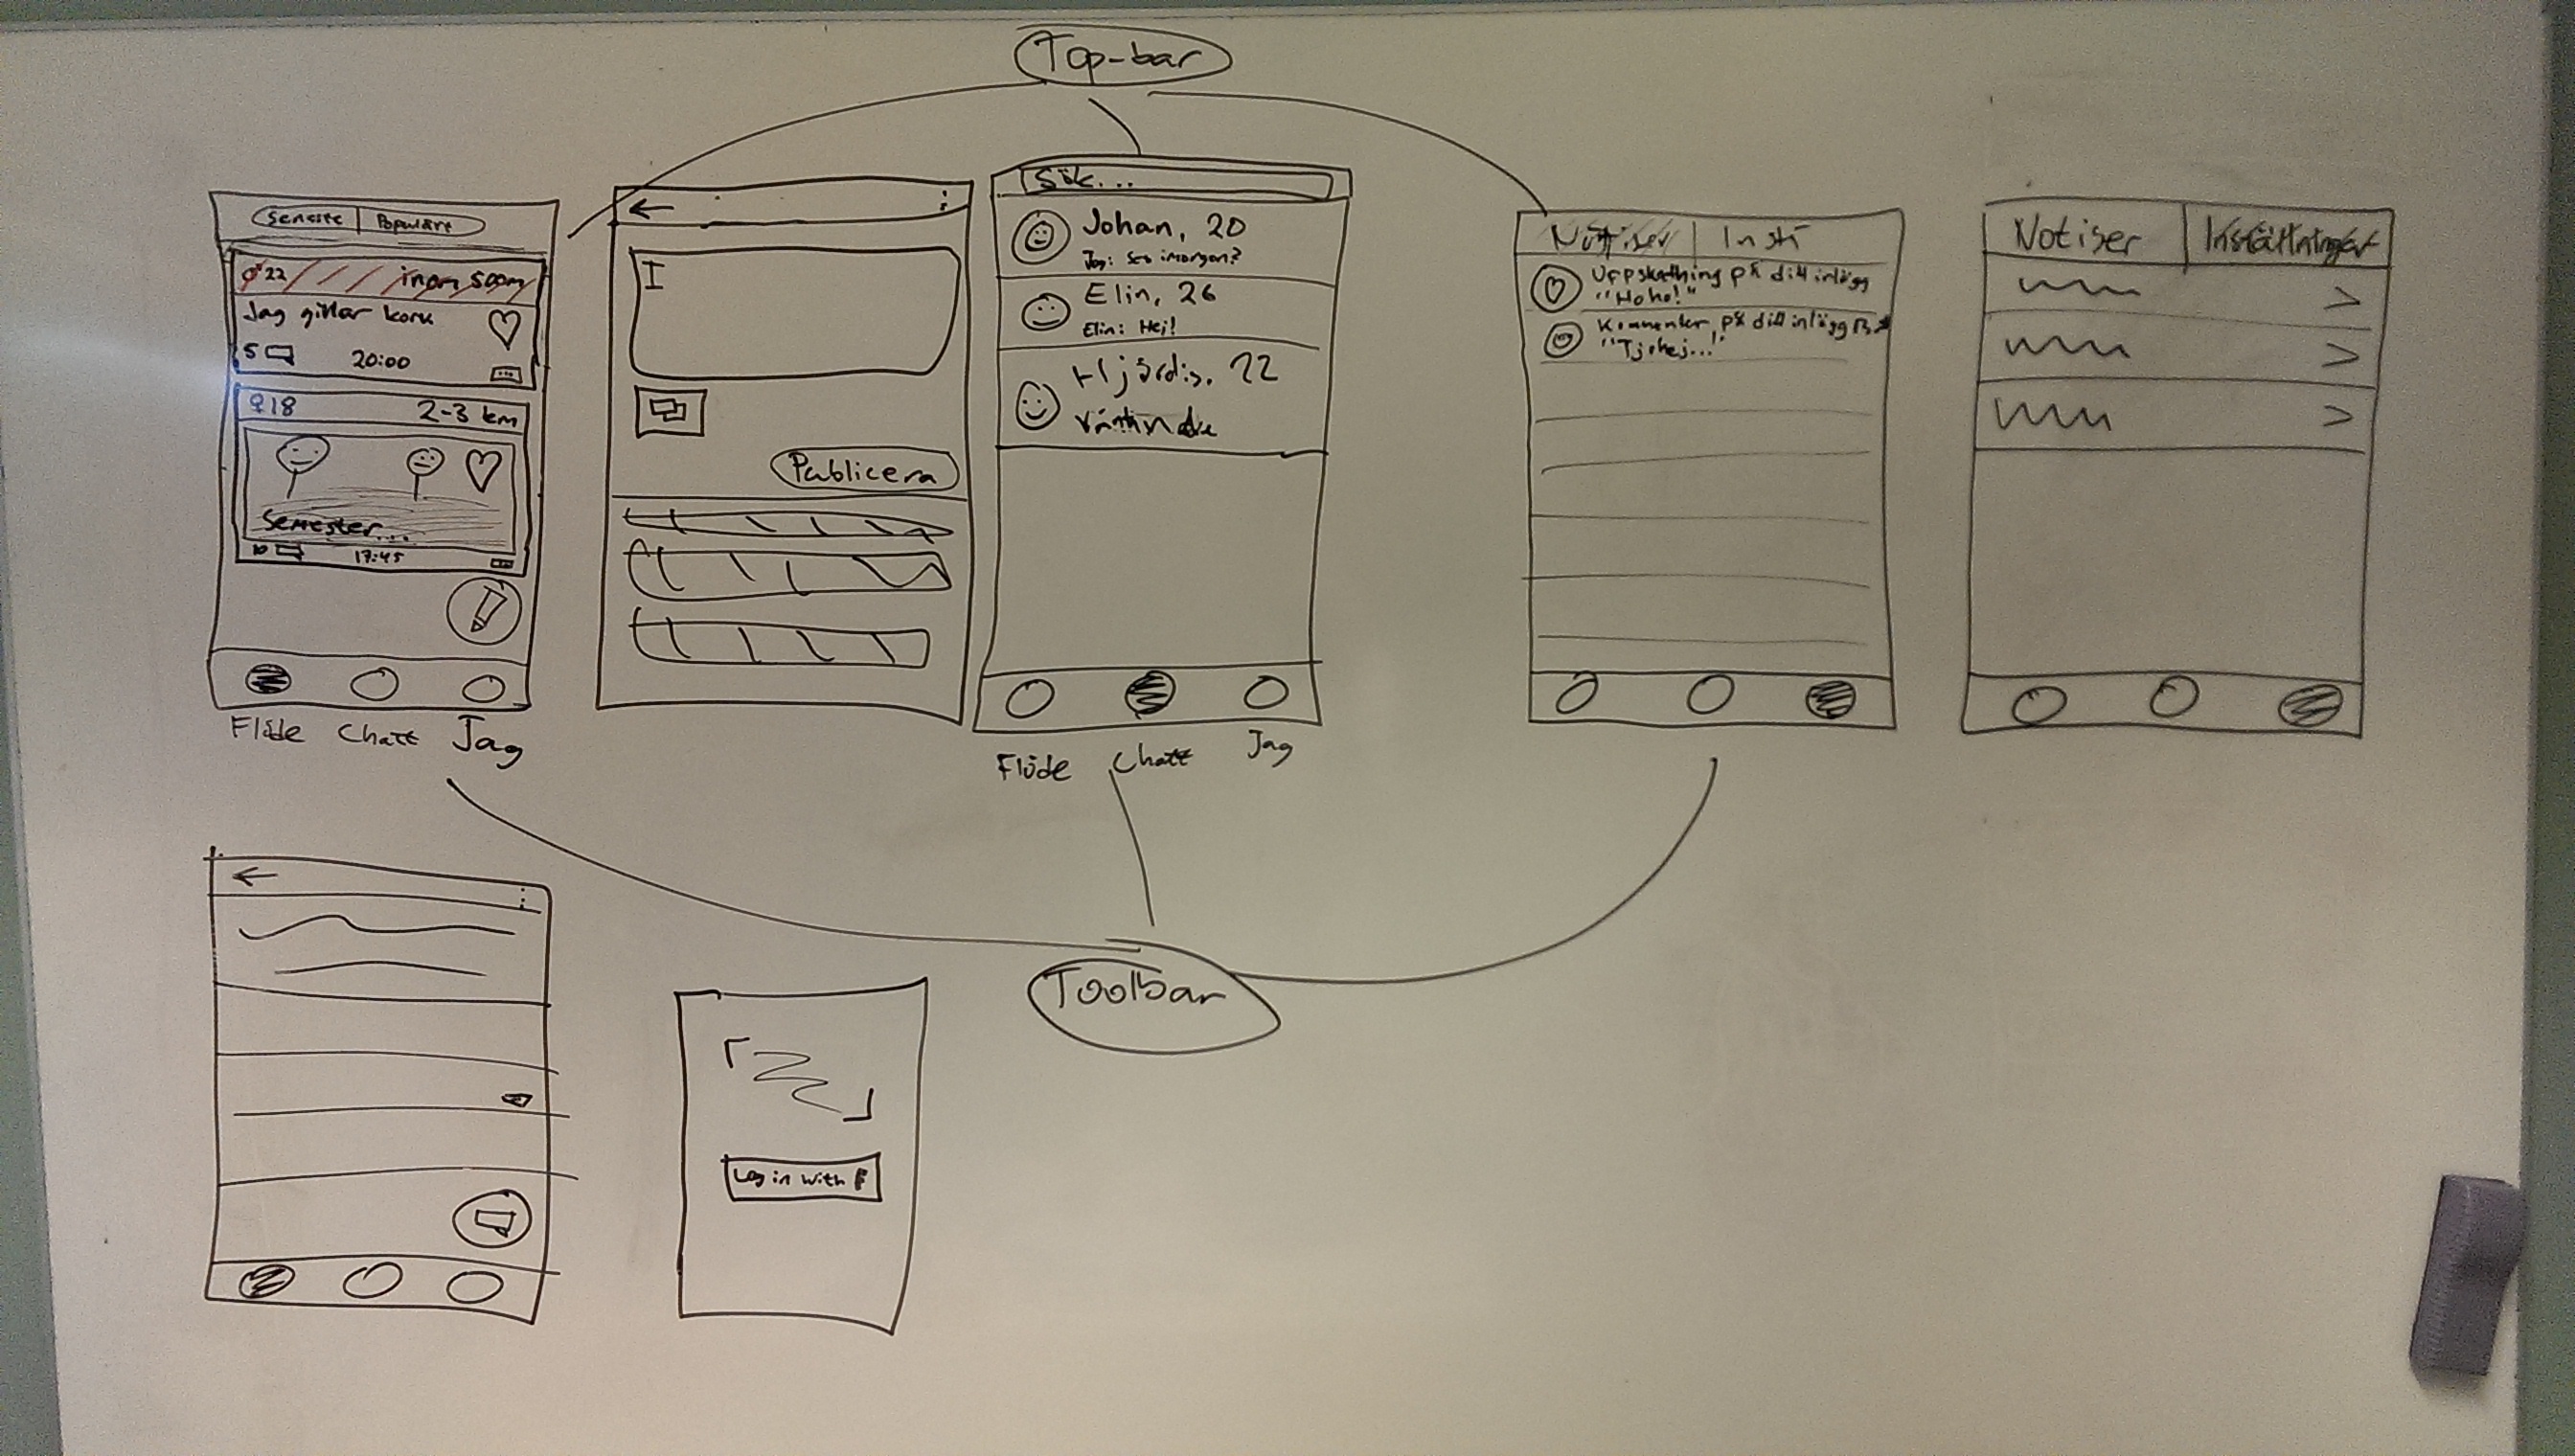 Top-bar
Senaste | Populärt
♂22 inom 500m
Jag gillar korv
5 20:00
♀18 2-3 km
Semester...
10 17:45
Flöde Chatt Jag
Publicera
Sök...
Johan, 20
Jag: Ses imorgon?
Elin, 26
Elin: Hej!
Hjördis, 22
Flöde Chatt Jag
Notiser | Inst
Uppskattning på ditt inlägg
"Hoho!"
Kommentar på ditt inlägg
"Tjohej..."
Notiser | Inställningar
Toolbar
Log in with F